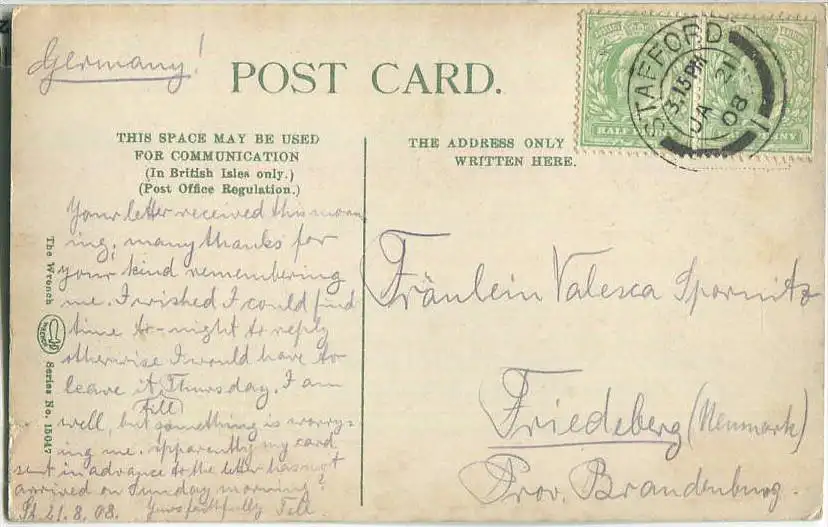 Germany!
POST CARD.
THIS SPACE MAY BE USED
FOR COMMUNICATION
(In British Isles only.)
(Post Office Regulation.)
THE ADDRESS ONLY
WRITTEN HERE.
HALF PENNY
STAFFORD
3.15 PM
JA 21
08
1
Your letter received this morn
ing, many thanks for
your kind remembering
me. I wished I could find
time to-night to reply
otherwise I would have to
leave it, Thursday. I am
till
well, but something is worry=
ing me. Apparently my card
sent in advance to the letter has not
arrived on Sunday morning?
St. 21.8.08. Yours faithfully
The Wrench
Series No. 15047
Fräulein Valesca Spornitz
Friedeberg (Neumark)
Prov. Brandenburg.